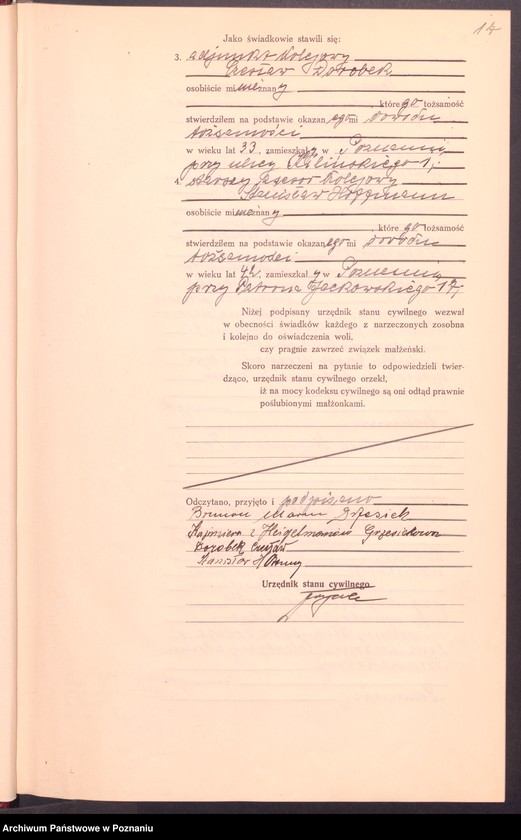 17
Jako świadkowie stawili się:
3. adjunkt kolejowy
Czesław Dorobek
osobiście mi nieznany
, które go tożsamość
stwierdziłem na podstawie okazanego mi dowodu
tożsamości
w wieku lat 33, zamieszkały w Poznaniu
przy ulicy Kilińskiego 1,
4. starszy asesor kolejowy
Stanisław Hoffmann
osobiście mi nieznany
, które go tożsamość
stwierdziłem na podstawie okazanego mi dowodu
tożsamości
w wieku lat 42, zamieszkały w Poznaniu
przy Patrona Jackowskiego 17,
Niżej podpisany urzędnik stanu cywilnego wezwał
w obecności świadków każdego z narzeczonych zosobna
i kolejno do oświadczenia woli,
czy pragnie zawrzeć związek małżeński.
Skoro narzeczeni na pytanie to odpowiedzieli twier-
dząco, urzędnik stanu cywilnego orzekł,
iż na mocy kodeksu cywilnego są oni odtąd prawnie
poślubionymi małżonkami.
Odczytano, przyjęto i podpisano
Brunon Marian Grzesiek
Kazimiera z Heigelmanów Grzesiekowa
Dorobek Czesław
Stanisław
Urzędnik stanu cywilnego
Archiwum Państwowe w Poznaniu